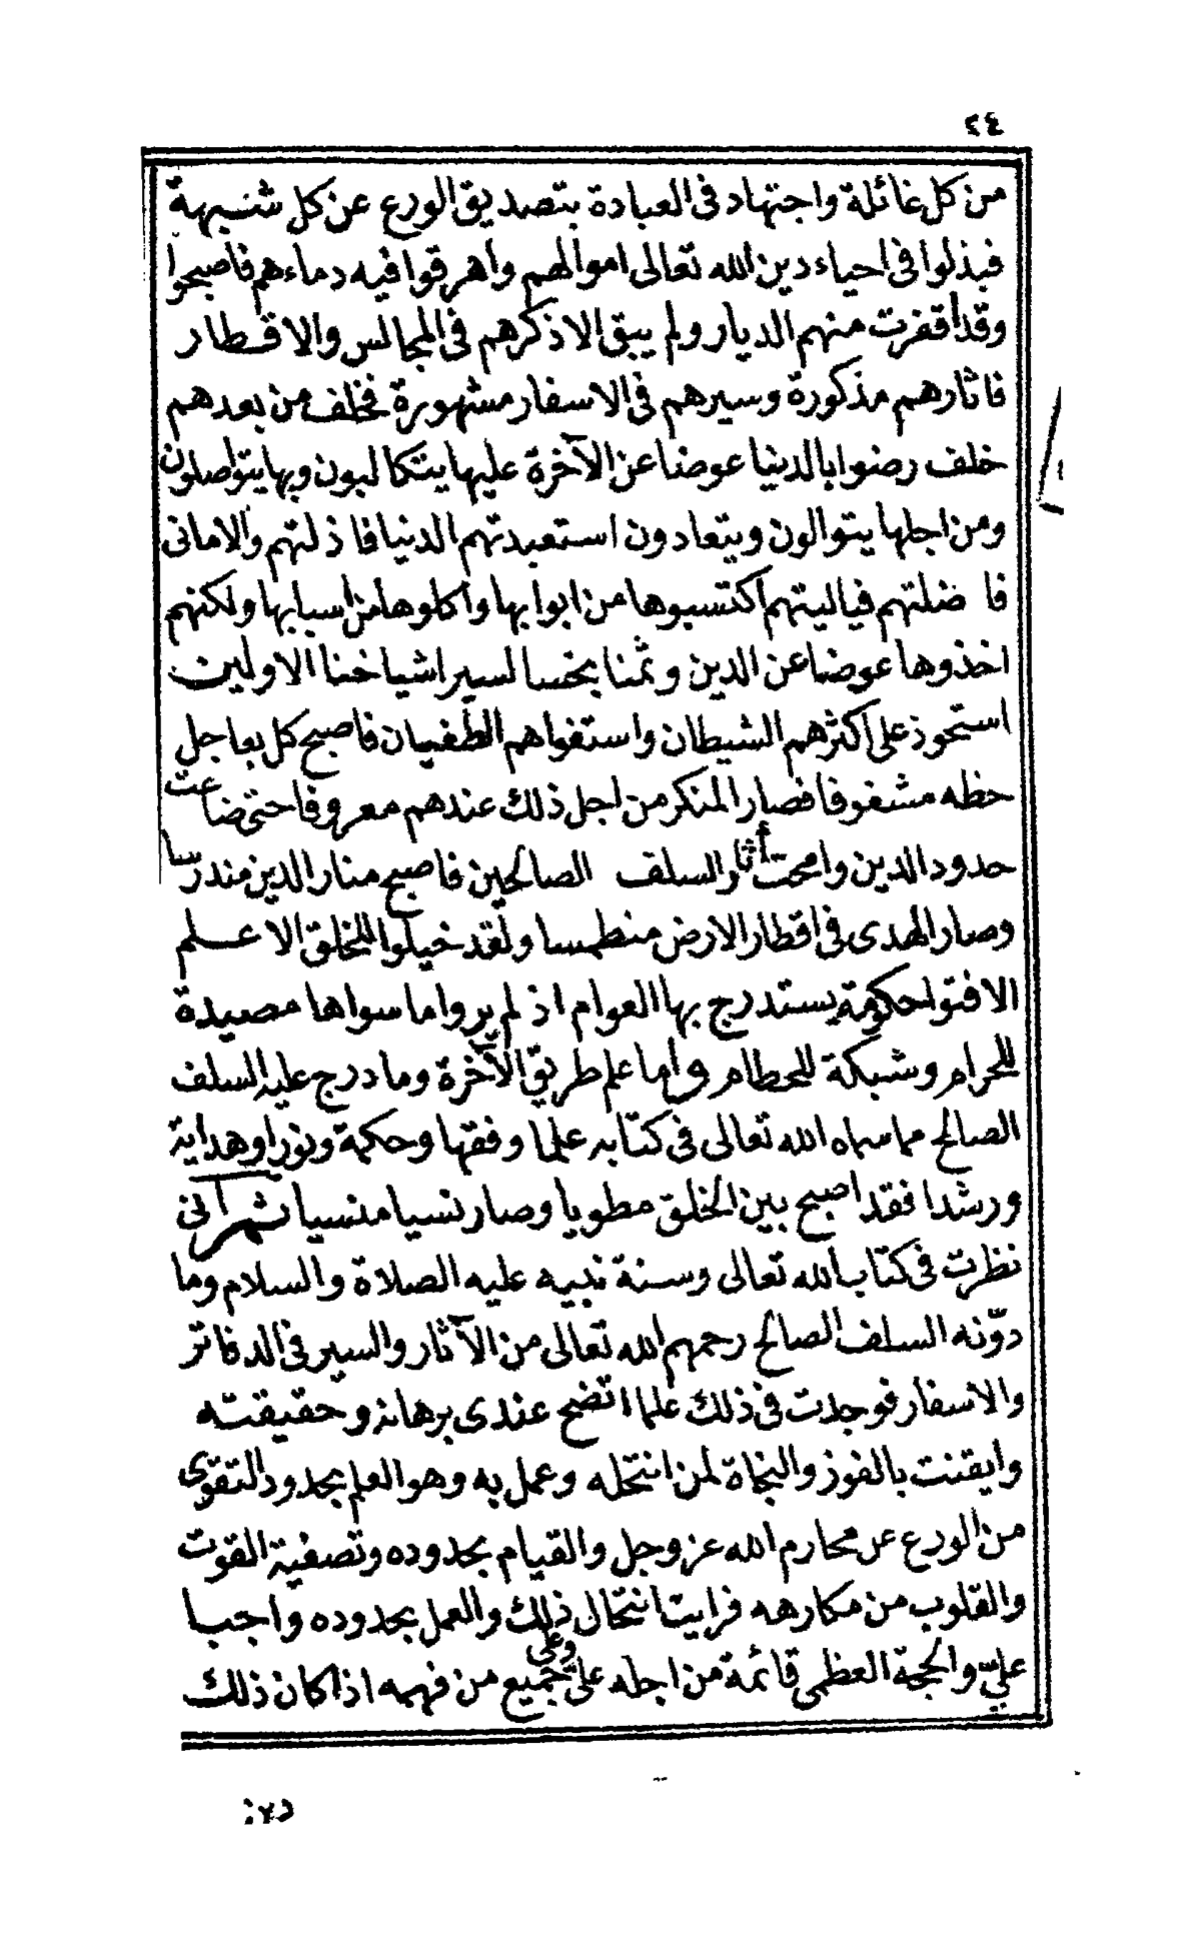 ٢٤
من كل غائلة واجتهاد فى العبادة بتصديق الورع عن كل شبهة
فبذلوا فى احياء دين الله تعالى اموالهم واهرقوا فيه دماءهم فاصبحوا
وقد اقفرت منهم الديار ولم يبق الا ذكرهم فى المجالس والاقطار
فاثارهم مذكورة وسيرهم فى الاسفار مشهورة فخلف من بعدهم
خلف رضوا بالدنيا عوضا عن الآخرة عليها يتكالبون وبها يتواصلون
ومن اجلها يتوالون ويتعادون استعبدتهم الدنيا فاذلتهم والامانى
فاضلتهم فياليتهم اكتسبوها من ابوابها واكلوها من اسبابها ولكنهم
اخذوها عوضا عن الدين وثمنا بخسا لسير اشياخنا الاولين
استحوذ على اكثرهم الشيطان واستغواهم الطغيان فاصبح كل بعاجل
حظه مشغوفا فصار المنكر من اجل ذلك عندهم معروفا حتى ضاعت
حدود الدين وامحت أثار السلف الصالحين فاصبح منار الدين مندرسا
وصار الهدى فى اقطار الارض منطمسا ولقد خيلوا للخلق الا علم
الا فتوا حكومة يستدرج بها العوام اذ لم يروا ما سواها مصيدة
للحرام وشبكة للحطام واما علم طريق الآخرة وما درج عليه السلف
الصالح مما سماه الله تعالى فى كتابه علما وفقها وحكمة ونورا وهداية
ورشدا فقد اصبح بين الخلق مطويا وصار نسيا منسيا ثم انى
نظرت فى كتاب الله تعالى وسنة نبيه عليه الصلاة والسلام وما
دوّنه السلف الصالح رحمهم الله تعالى من الآثار والسير فى الدفاتر
والاسفار فوجدت فى ذلك علما اتضح عندى برهانه وحقيقته
وايقنت بالفوز والنجاة لمن انتحله وعمل به وهو العلم بحدود التقوى
من الورع عن محارم الله عز وجل والقيام بحدوده وتصفية القوت
والقلوب من مكارهه فرايت انتحال ذلك والعمل بحدوده واجبا
علىّ والحجة العظمى قائمة من اجله علىّ وعلى جميع من فهمه اذا كان ذلك